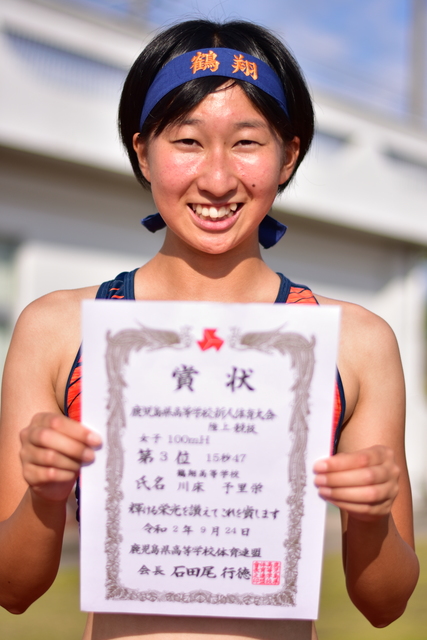 鶴翔
賞状
鹿児島県高等学校新人体育大会
陸上競技
女子 100mH
第3位 15秒47
鶴翔高等学校
氏名 川床 予里栄
輝ける栄光を讃えてこれを賞します
令和2年9月24日
鹿児島県高等学校体育連盟
会長 石田尾 行徳